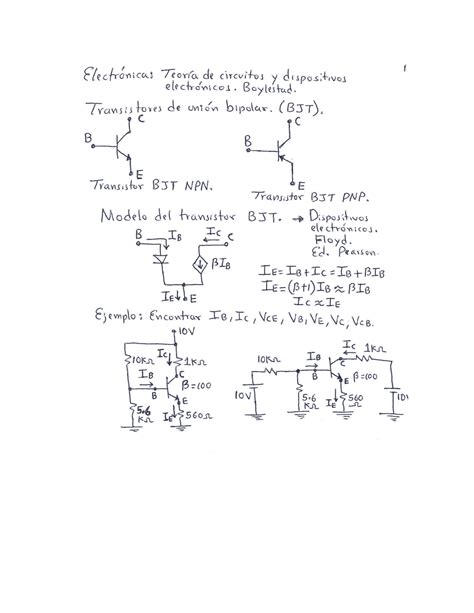 1
Electrónica: Teoría de circuitos y dispositivos
electrónicos. Boylestad.
Transistores de unión bipolar. (BJT).
C C
B B
E E
Transistor BJT NPN. Transistor BJT PNP.
Modelo del transistor BJT. → Dispositivos
electrónicos.
Floyd.
Ed. Pearson.
B IB IC C
βIB
IE E
IE=IB+IC=IB+βIB
IE=(β+1)IB≈βIB
IC≈IE
Ejemplo: Encontrar IB, IC, VCE, VB, VE, VC, VCB.
10V
10KΩ IC 1KΩ
IB C
B β=100
E
5.6 KΩ IE 560Ω
IC 1KΩ
10KΩ IB C
B β=100
E
10V 5.6 KΩ IE 560 Ω 10V